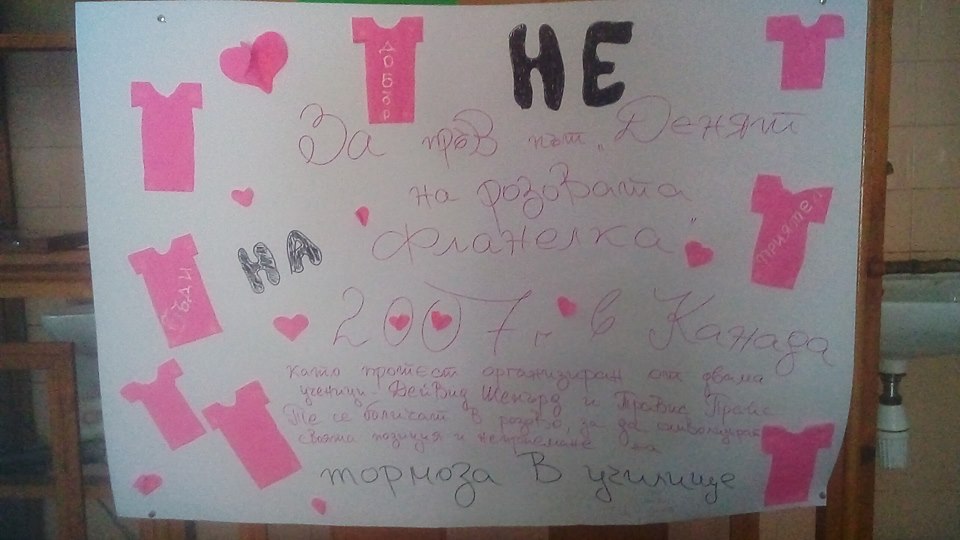 НЕ
добър
За първи път „Денят
на розовата
приятел
фланелка"
НА
бъди
2007 г в Канада
като протест организиран от двама
ученици Дейвид Шепърд и Травис Прайс
Те се обличат в розово, за да символизират
своята позиция и неприемане на
тормоза в училище